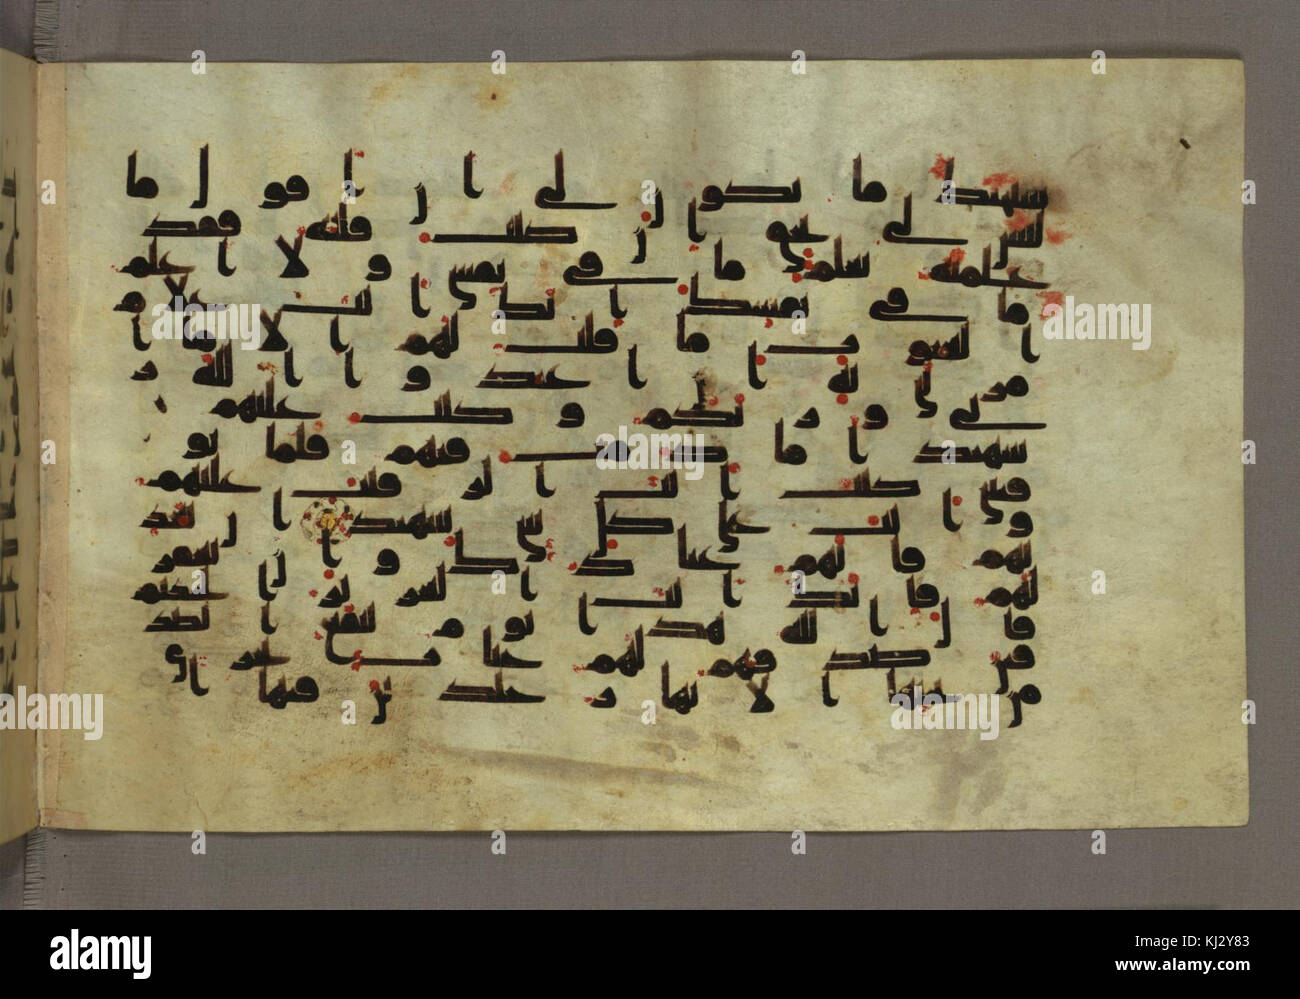 سبحنك ما يكون لي ان اقول ما
ليس لي بحق ان كنت قلته فقد
علمته تعلم ما في نفسي ولا اعلم
ما في نفسك انك انت علم
الغيوب ما قلت لهم الا ما ا
مرتني به ان اعبدوا الله ر
بي وربكم وكنت عليهم
شهيدا ما دمت فيهم فلما تو
فيتني كنت انت الرقيب عليهم
وانت على كل شي شهيد ان تعذ
بهم فانهم عبادك وان تغفر
لهم فانك انت العزيز الحكيم
قال الله هذا يوم ينفع الصد
قين صدقهم لهم جنت تجري
من تحتها الانهر خلدين فيها
alamy
Image ID: KJ2Y83
www.alamy.com